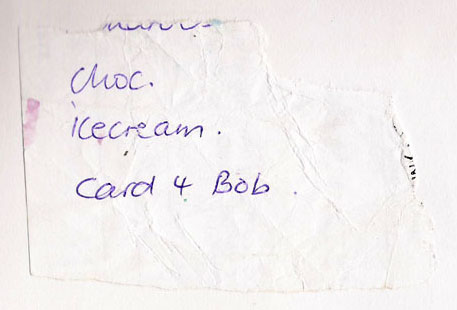 Choc.
icecream.
Card 4 Bob.